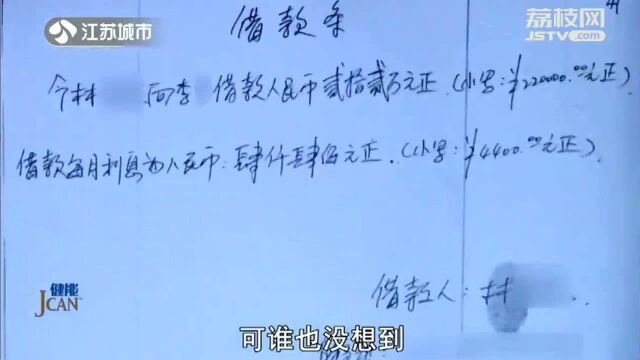 江苏城市
荔枝网
JSTV.com
借款条
今林 向李 借款人民币贰拾贰万元正.(小写:¥220000.00元正)
借款每月利息为人民币:肆仟肆佰元正.(小写:¥4400.00元正)
借款人:林
健能
JCAN
可谁也没想到